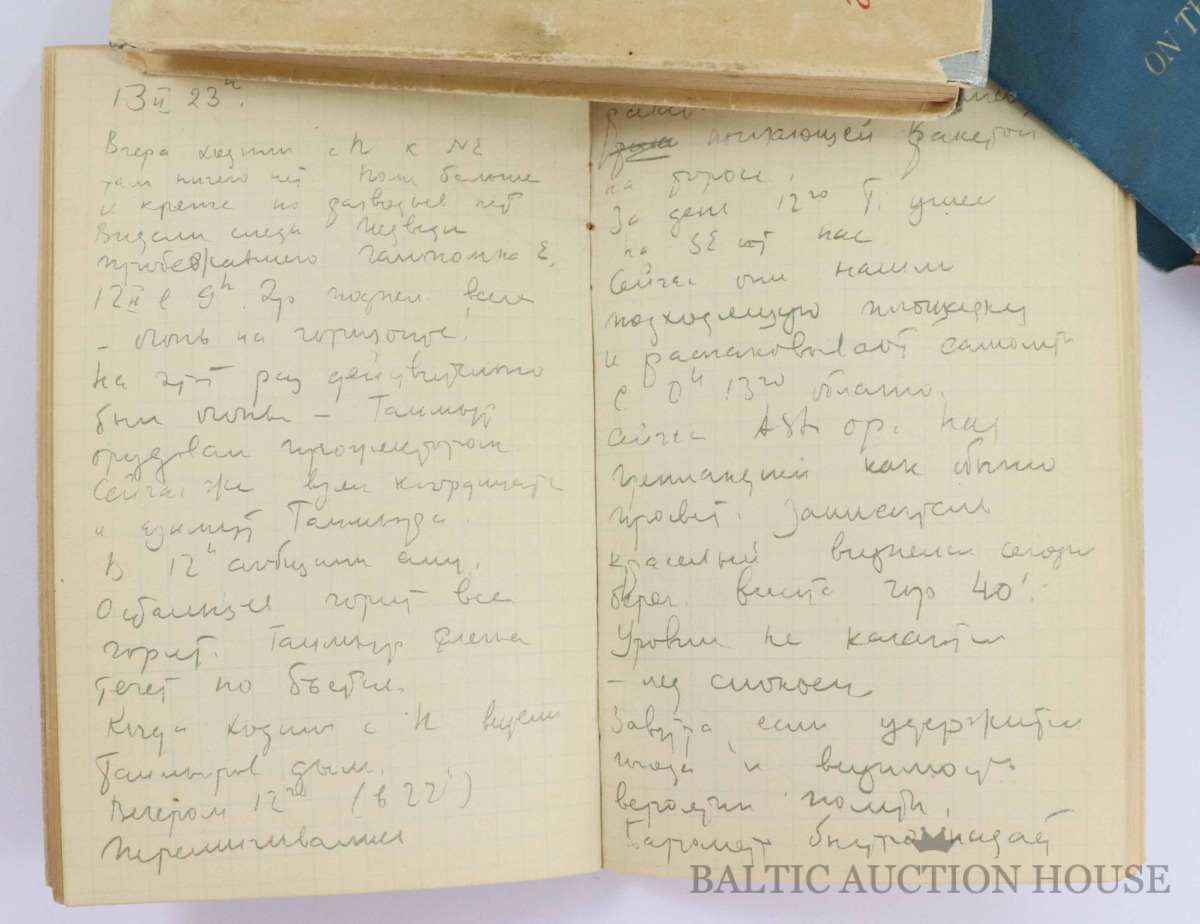 ON TH
13 II 23ч.
Вчера ходили с П к NE
там ничего нет. Поля больше
и крепче но разводьев нет
Видели следы медведя
пробежавшего галопом на E.
12 II в 9ч. Эр поднял всех
– огонь на горизонте!
На этот раз действительно
был огонь – Таймыр
орудовал прожектором.
Сейчас же взял координаты
и азимут Таймыра.
В 12ч сообщили ему.
горит все
горит. Таймыр
течет по
Когда ходили с П видели
Таймыров дым.
Вечером 12го (в 22ч)
перемигивались
ракетой
на
За день 12го Т. ушел
на SE от нас.
Сейчас они нашли
подходящую площадку
и распаковывают самолет
с 0ч 13го облачно.
сейчас Ast. op. Над
Гренландией как обычно
просвет.
красивый видели сегодня
берег. высота гор 40'.
Уровни не качаются
– лед спокоен
Завтра если удержится
погода и видимость
вероятен полет.
Барометр быстро падает
BALTIC AUCTION HOUSE